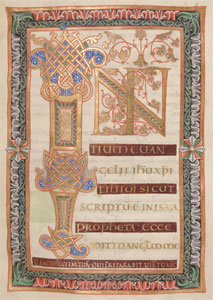 IN
ITIUM EUAN
GELII IHU XPI
FILII DI SICUT
SCRIPTU E IN ISAIA
PROPHETA ECCE
MITTO ANGLM